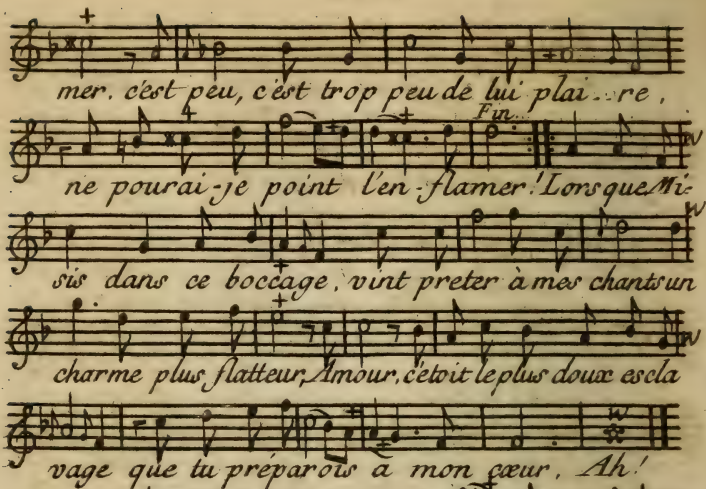 mer. c'est peu, c'est trop peu de lui plai...re,
Fin.
ne pourai-je point l'en-flamer! Lorsque Mi-
sis dans ce boccage, vint preter à mes chants un
charme plus flatteur, Amour, c'étoit le plus doux escla
vage que tu préparois a mon cœur. Ah!